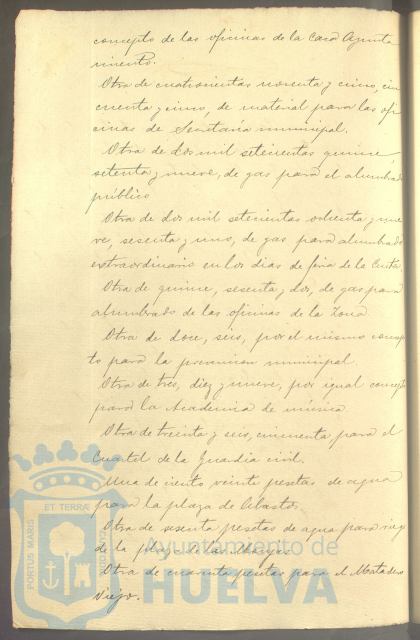 concepto de las oficinas de la Casa Ayunta
miento.
Otra de cuatrocientas noventa y cinco, cin
cuenta y cinco, de material para las ofi
cinas de Secretaría municipal.
Otra de dos mil setecientas quince
setenta y nueve, de gas para el alumbrado
público
Otra de dos mil setecientas ochenta y nue
ve, sesenta y uno, de gas para alumbrado
extraordinario en los días de feria de la Cinta.
Otra de quince, sesenta y dos, de gas para
alumbrado de las oficinas de la Zona.
Otra de doce, seis, por el mismo concep
to para la prevencion municipal.
Otra de tres, diez y nueve, por igual concepto
para la Academia de música.
Otra de treinta y seis, cincuenta para el
Cuartel de la Guardia civil.
Una de ciento veinte pesetas de agua
para la plaza de Abastos.
Otra de sesenta pesetas de agua para riego
de la plaza de las Monjas.
Otra de cuarenta pesetas para el Matadero
viejo.
PORTUS MARIS
ET TERRAE
CUSTODIA
Ayuntamiento de
HUELVA